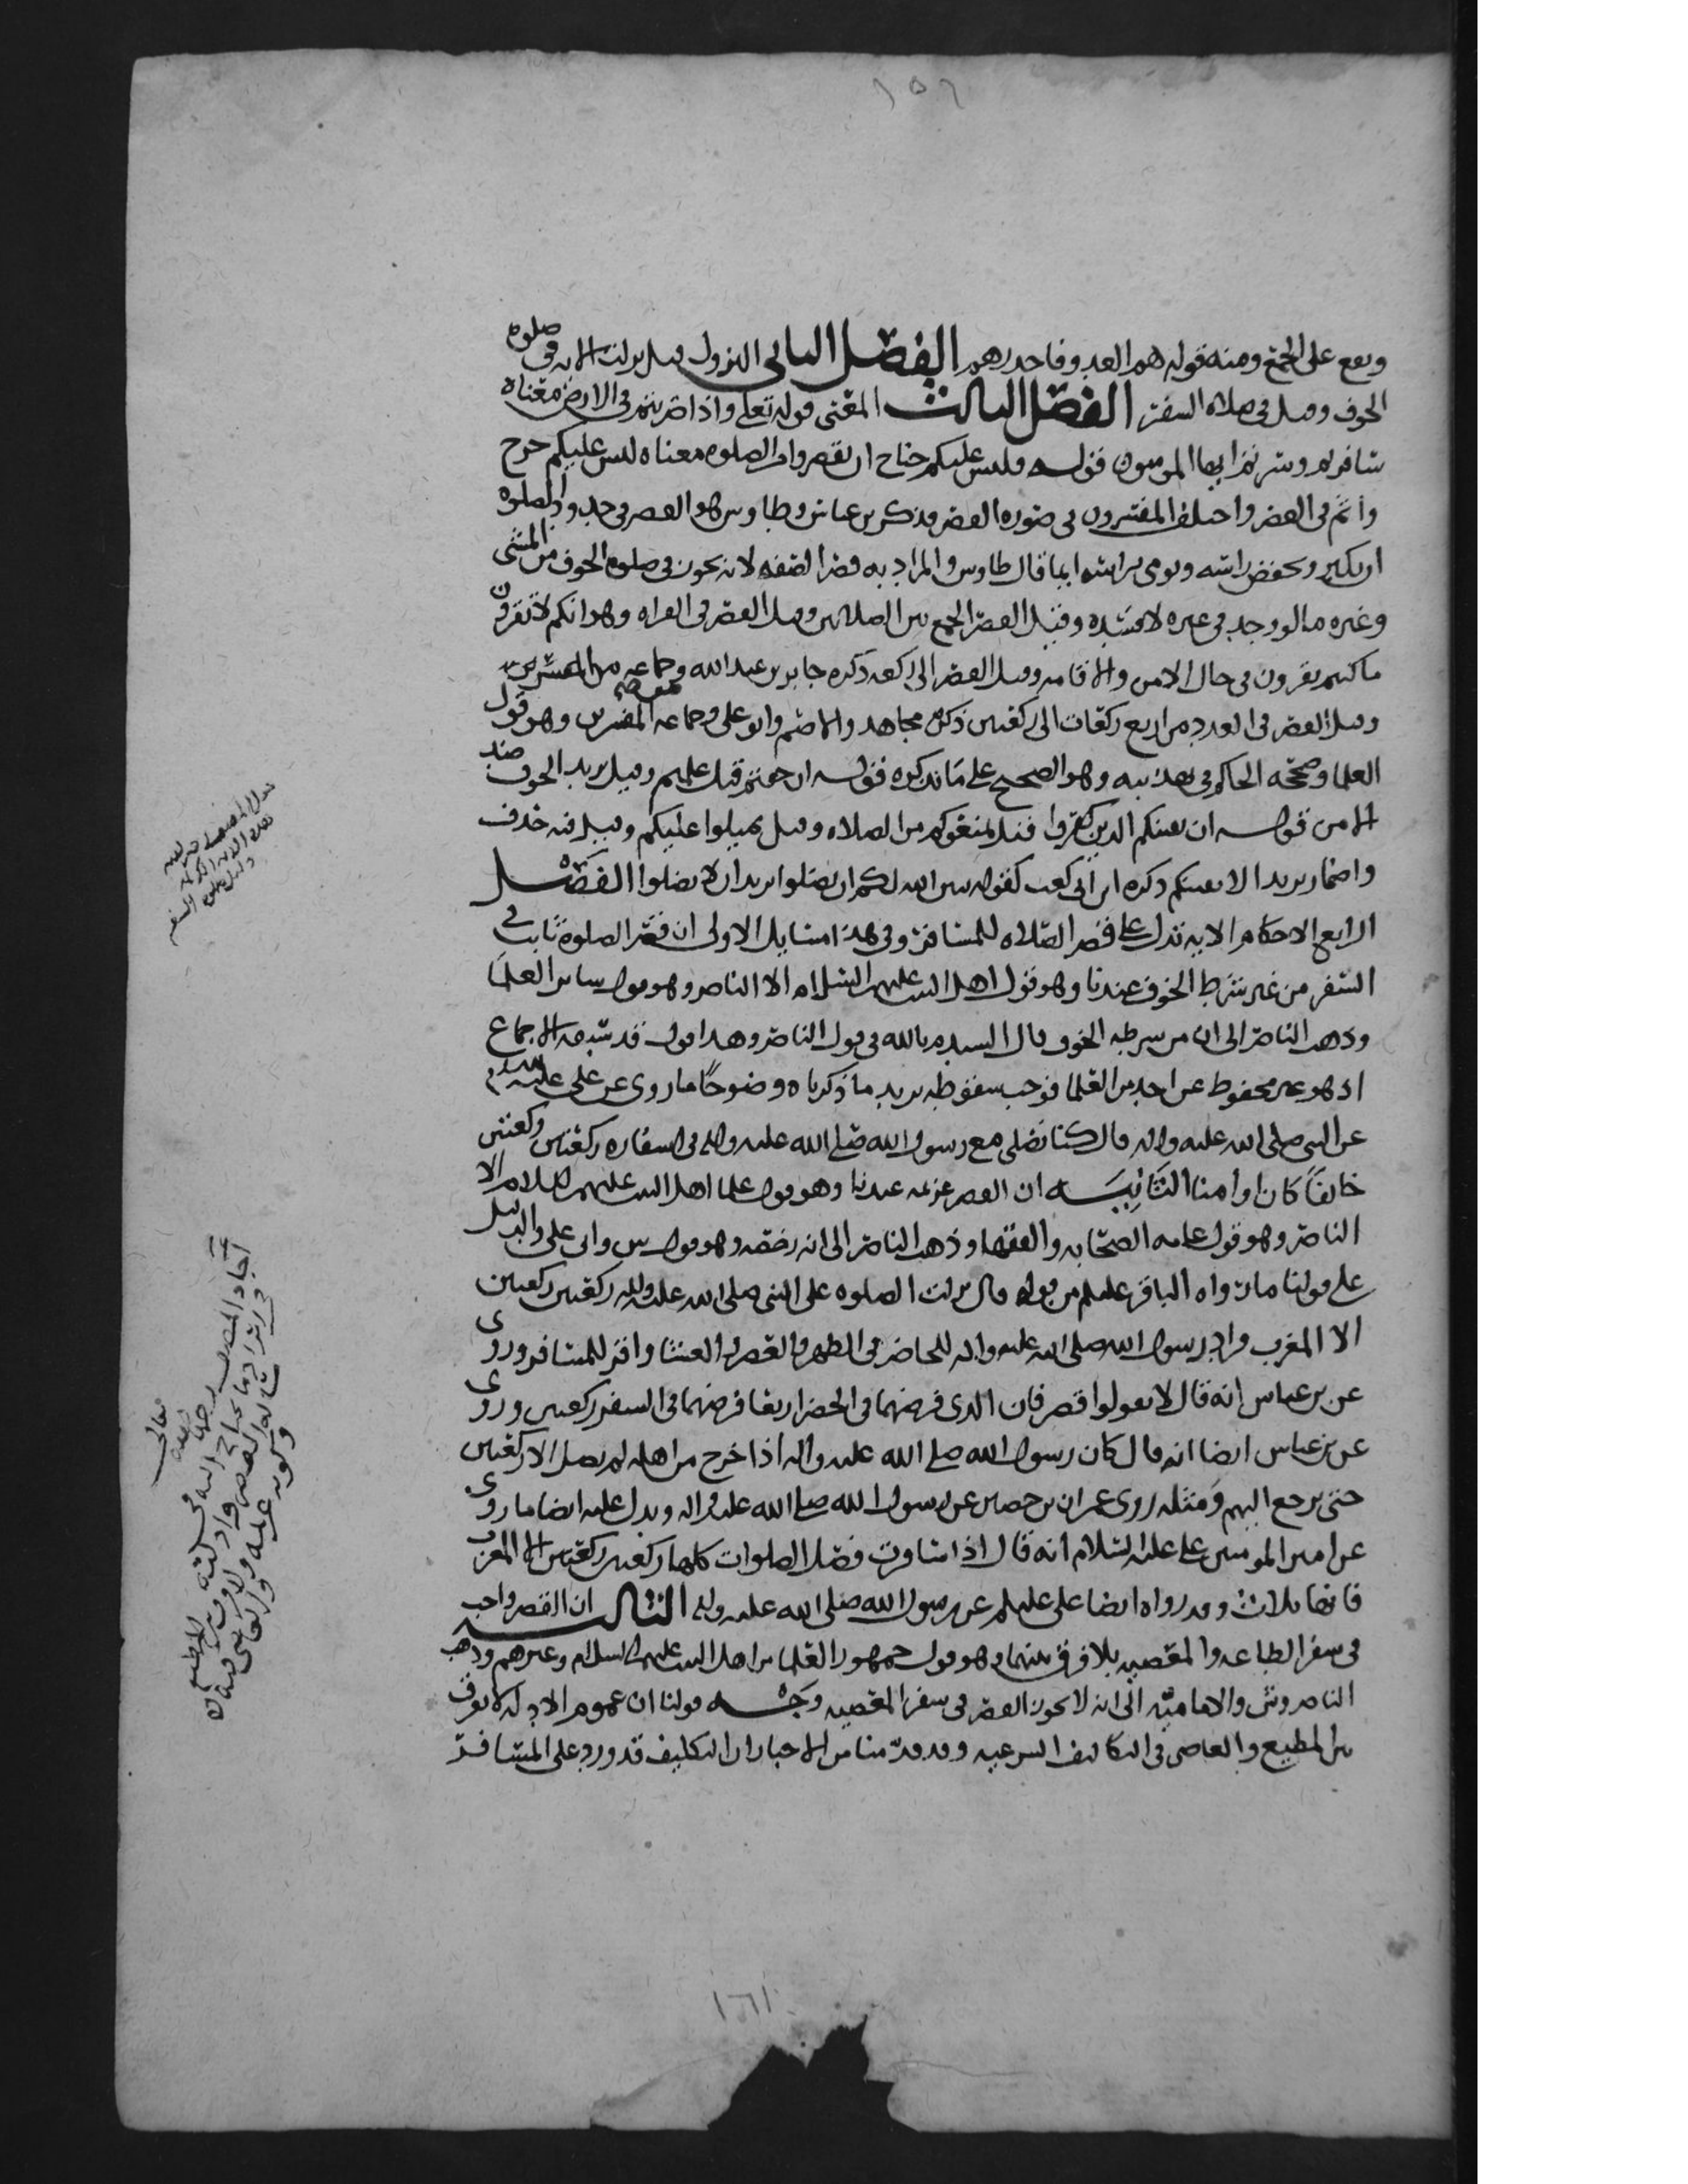 ١٥٦
ويقع على الجمع ومنه قوله هم العدو فاحذرهم الفصل الثاني النزول قيل نزلت الاية في صلوة
الخوف وقيل في صلاة السفر الفصل الثالث المعنى قوله تعلى واذا ضربتم في الارض معناه
سافرتم وسرتم ايها المومنون قوله فليس عليكم جناح ان تقصروا من الصلوة معناه ليس عليكم حرج
واثم في القصر واختلف المفسرون في صورة القصر فذكر بن عباس وطاوس هو القصر في حدود الصلوة
ان يكبر ويخفض راسه ويومي براسه ايما قال طاوس والمراد به قصر الصفة لانه يجوز في صلوة الخوف من المشي
وغيره ما لو وجد في غيره لافسده وقيل القصر الجمع بين الصلاتين وقيل القصر في القراه وهو انكم لا تقرون
ما كنتم تقرون في حال الامن والاقامه وقيل القصر الى ركعه ذكره جابر بن عبد الله وجماعه من المفسرين
وقيل القصر في العدد من اربع ركعات الى ركعتين ذكره مجاهد والاصم وابو علي وجماعه المفسرين وهو قول
العلما وصححه الحاكم في تهذيبه وهو الصحيح على ما نذكره قوله ان خفتم قيل علمتم وقيل يريد الخوف ضد
الامن قوله ان يفتنكم الذين كفروا قيل يمنعوكم من الصلاه وقيل يميلوا عليكم وقيل فيه حذف
واضمار يريد الا يفتنكم ذكره ابي بن كعب كقوله يبين الله لكم ان تضلوا يريد ان لا تضلوا الفصل
الرابع الاحكام الايه تدل على قصر الصلاه للمسافر وفي هذا مسايل الاولى ان قصر الصلوة ثابت في
السفر من غير شرط الخوف عندنا وهو قول اهل البيت عليهم السلام الا الناصر وهو قول ساير العلما
وذهب الناصر الى ان من شرطه الخوف قال السيد م بالله في قول الناصر وهذا قول قد سبقه الاجماع
اذ هو غير محفوظ عن احد من العلما فوجب سقوطه يريد ما ذكرناه وضوحًا ما روى عن علي عليه السلام
عن النبي صلى الله عليه واله قال كنا نصلي مع رسول الله صلى الله عليه واله في اسفاره ركعتين ركعتين
خائفًا كان او امنا الثانيـه ان القصر عزيمه عندنا وهو قول علما اهل البيت عليهم السلام الا
الناصر وهو قول عامه الصحابه والفقها وذهب الناصر الى انه رخصه وهو قول ش وابي علي والدليل
على قولنا ما رواه الباقر عليلم من قوله قال نزلت الصلوه على النبي صلى الله عليه واله ركعتين ركعتين
الا المغرب فزاد رسول الله صلى الله عليه واله للحاضر في الظهر والعصر والعشا واقر للمسافر وروى
عن بن عباس انه قال لا تقولوا قصر فان الذي فرضهما في الحضر اربعا فرضهما في السفر ركعتين وروى
عن بن عباس ايضا انه قال كان رسول الله صلى الله عليه واله اذا خرج من اهله لم يصل الا ركعتين
حتى يرجع اليهم ومثله روى عمران بن حصين عن رسول الله صلى الله عليه واله ويدل عليه ايضا ما روى
عن امير المومنين علي عليه السلام انه قال اذا سافرت فصل الصلوات كلها ركعتين ركعتين الا المغرب
فانها ثلاث وقد رواه ايضا علي عليلم عن رسول الله صلى الله عليه واله الثالثـه ان القصر واجب
في سفر الطاعه والمعصيه بلا فرق بينهما وهو قول جمهور العلما من اهل البيت عليهم السلام وغيرهم وذهب
الناصر وش والاماميه الى انه لا يجوز القصر في سفر المعصيه وجـه قولنا ان عموم الادله لا تفرق
بين المطيع والعاصي في التكاليف الشرعيه وقد قدمنا من الاخبار ان التكليف قد ورد على المسافر
اجاد المصنف رحمه الله تعالى
١٦١